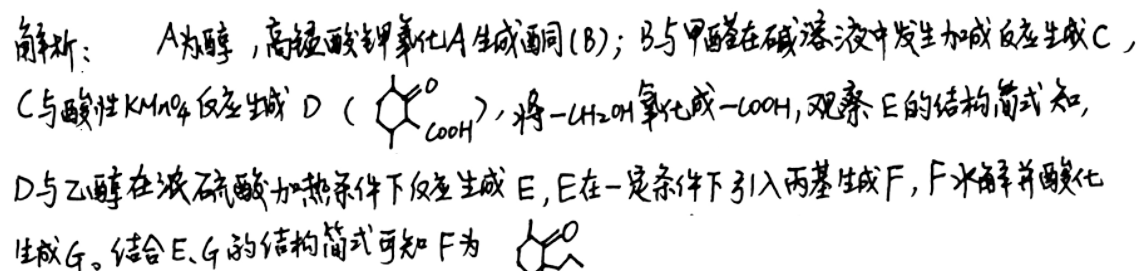 解析: A为醇,高锰酸钾氧化A生成酮(B);B与甲醛在碱溶液中发生加成反应生成C,
C与酸性KMnO4反应生成 D ( O COOH ),将-CH2OH氧化成-COOH,观察 E的结构简式知,
D与乙醇在浓硫酸加热条件下反应生成 E,E在一定条件下引入丙基生成F,F水解并酸化
生成G。结合E、G的结构简式可知 F为 O